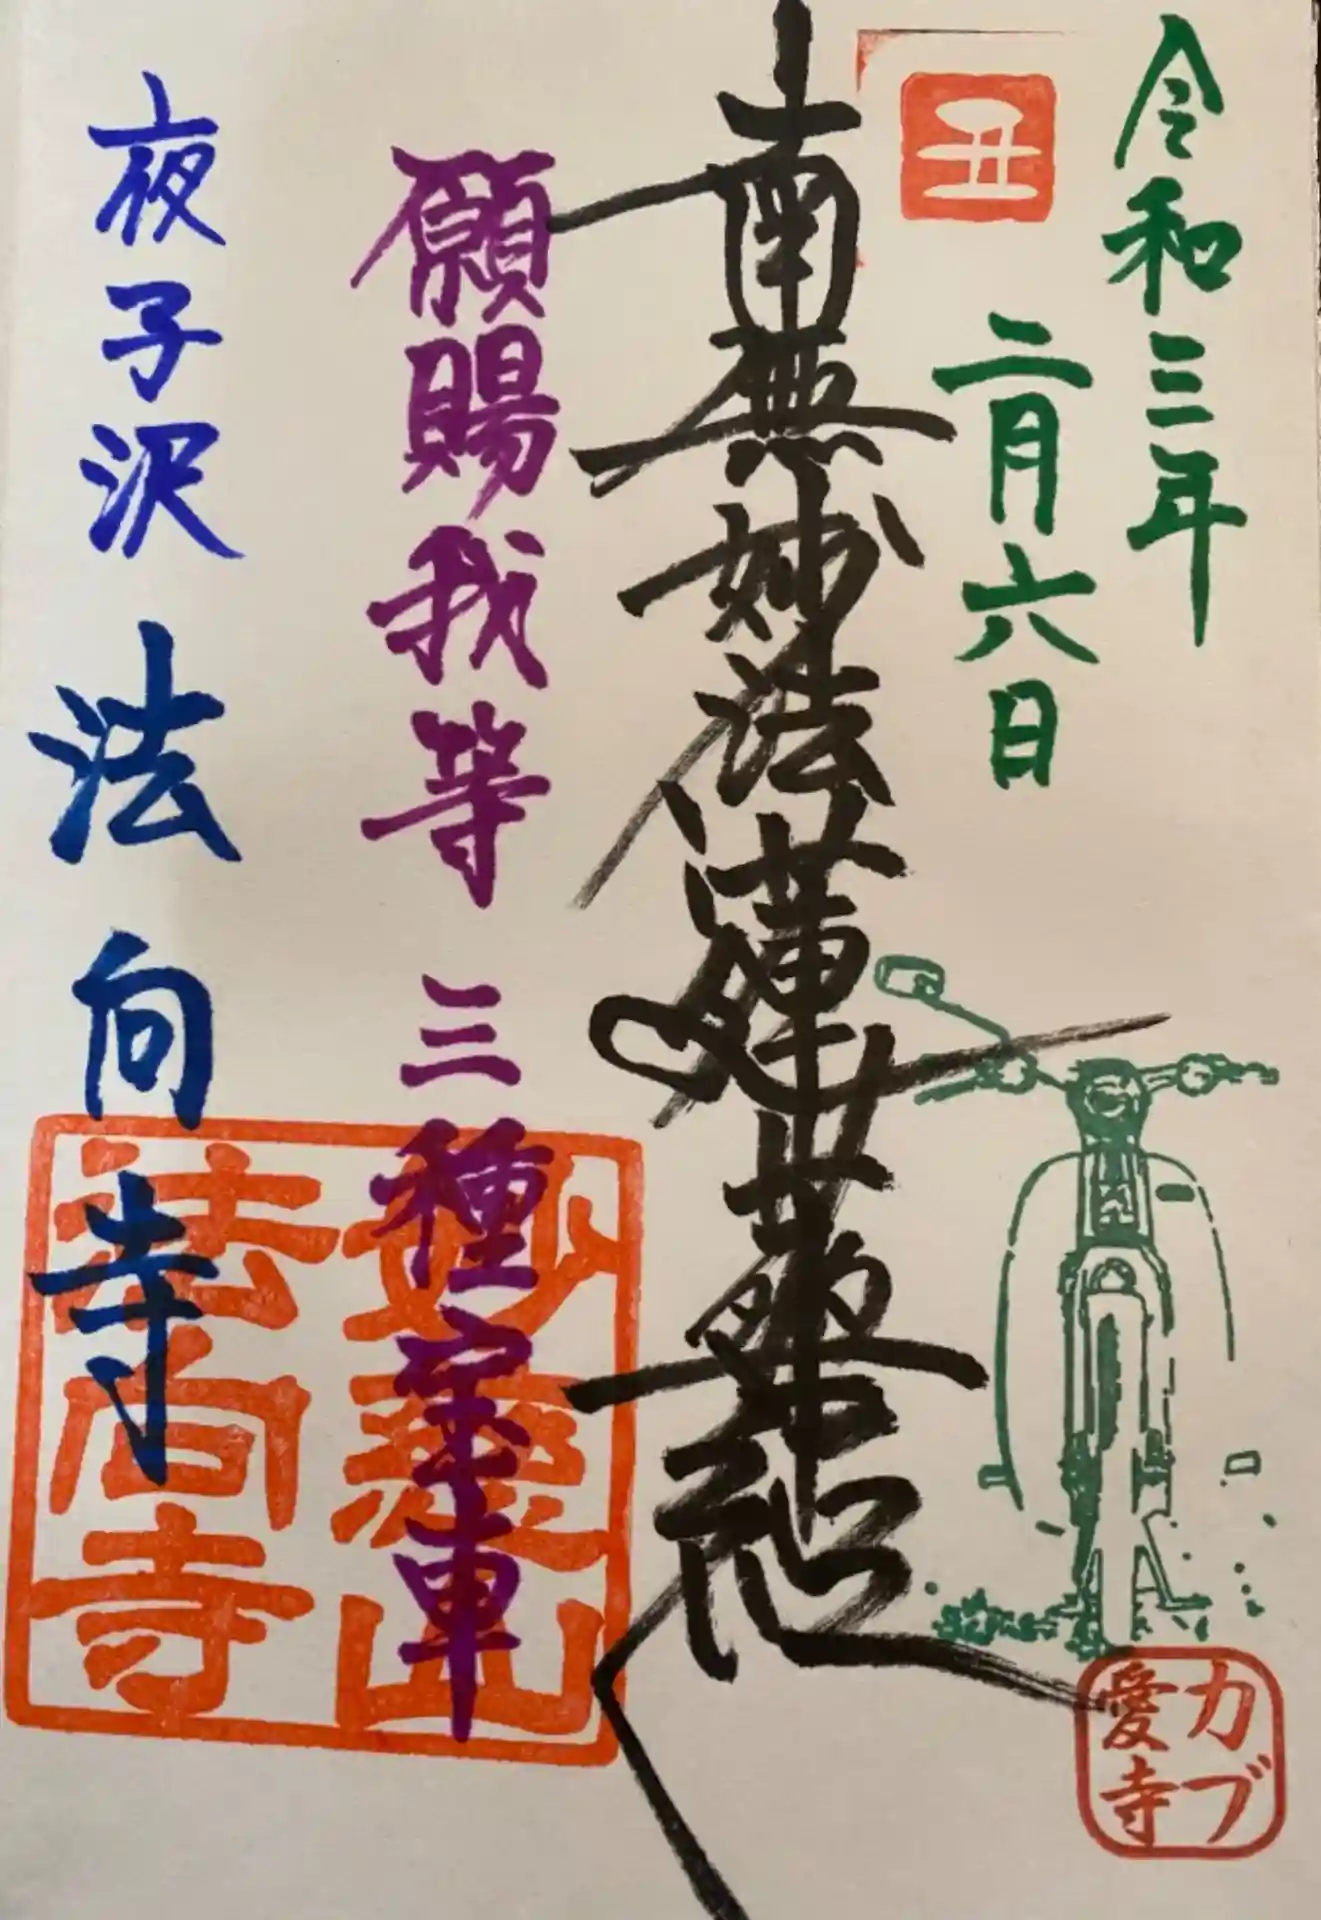 令和三年
二月六日
丑
南無妙法蓮華経
願賜我等 三種宝車
夜子沢 法向寺
カブ
愛寺
法向寺